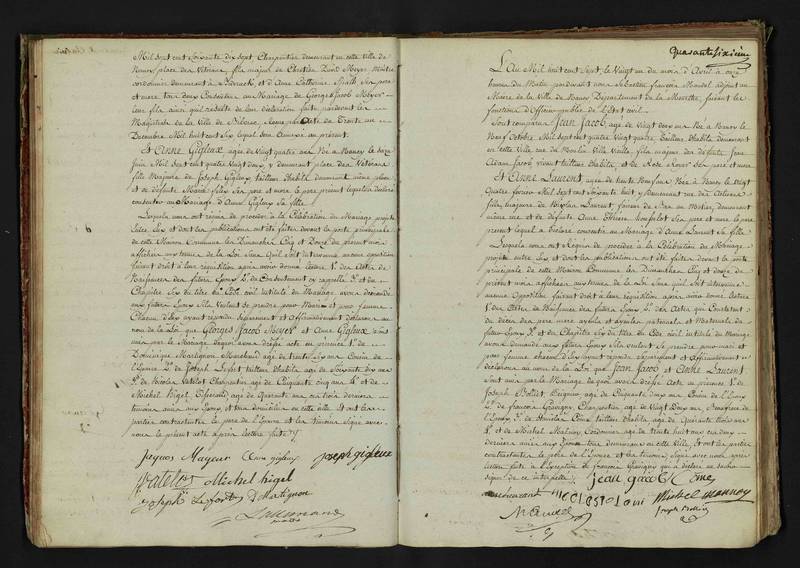 Mil sept cent soixante dix sept Charpentier demeurant en cette ville de
Nancy place des Vétérans, fils majeur de Chrétien David Meyer Maître
cordonnier demeurant à Biberach, et d'Anne Catherine
et mere tous deux Consentans au Mariage de Georges Jacob Meyer
fils ainsi qu'il résulte de leur déclaration faite pardevant les
Magistrats de la Ville de Biberac, Royaume de
Décembre Mil huit cent six lequel sera annexé au présent
Et Anne Gigleux agée de vingt quatre ans Née à Nancy le
Juin Mil sept cent quatre vingt deux, y demeurant place des Vétérans
fille Majeure de Joseph Gigleux tailleur d'habits demeurant même place
et de défunte Marie ses pere et mere le pere présent lequel a déclaré
consentir au Mariage d'Anne Gigleux sa fille
Lesquels nous ont requis de procéder à la Célébration du Mariage projetté
entre Eux et dont les publications ont été faites devant la porte principale
de cette Maison Commune les Dimanches Cinq et Douze du présent mois
affichées aux termes de la Loi sans qu'il soit intervenu aucune opposition
faisant droit à leur requisition après avoir donné lecture 1° des Actes de
Naissances des futurs Epoux 2° du Consentement cy rappellé 3° et du
Chapitre Six du titre du Code civil intitulé du Mariage avons demandé
aux futurs Epoux S'ils Veulent se prendre pour Mari et pour femme
Chacun d'Eux ayant répondu séparément et affirmativement Déclarons au
nom de la Loi que Georges Jacob Meyer et Anne Gigleux sont
unis par le Mariage de quoi avons dressé acte en présence 1° de
Dominique Martignon Marchand agé de trente six ans Cousin de
l'Epouse 2° de Joseph Lefort tailleur d'habits agé de soixante dix ans
3° de Nicolas Vatelot Charpentier agé de Cinquante cinq ans 4° et de
Michel Higel agé de Quarante un ans les trois derniers
témoins amis aux Epoux, et tous domiciliés en cette ville et ont les
parties contractantes le pere de l'Epouse et les témoins Signé avec
nous le présent acte après lecture faite
Jacques Mayeur Anne gigleux Joseph gigleux
Vatelot Michel higel
Joseph Lefort D Martignon
Quarante sixieme
L'An Mil huit cent Sept, le Vingt un du mois d'Avril à onze
heures du Matin pardevant nous Sébastien françois Mandel adjoint au
Maire de la Ville de Nancy Département de la Meurthe, faisant les
fonctions d'Officier public de l'Etat civil
Sont comparus Jean Jacob, agé de vingt deux ans Né à Nancy le
Neuf Octobre Mil sept cent quatre vingt quatre tailleur d'habits demeurant
en cette Ville rue du Moulin Ville Vieille, fils majeur des défunts Jean
Adam Jacob vivant tailleur d'habits et de Rose ses pere et mere
Et Anne Laurent, agée de trente Neuf ans Née à Nancy le Vingt
Quatre février Mil sept cent soixante huit, y demeurant rue des Artisans
fille majeure de Nicolas Laurent faiseur de Bas au Métier, demeurant
même rue et de défunte Anne Thérese ses pere et mere le pere
présent lequel a déclaré consentir au Mariage d'Anne Laurent sa fille
Lesquels nous ont Requis de procéder à la Célébration du Mariage
projetté entre Eux et dont les publications ont été faites devant la porte
principale de cette Maison Commune les Dimanches Cinq et douze du
présent mois affichées aux termes de la Loi sans qu'il soit intervenu
aucune Opposition faisant droit à leur requisition après avoir donné lecture
1° des Actes de Naissances des futurs Epoux 2° des Actes qui Constatent
du décès des pere mere ayeuls et ayeules paternels et Maternels du
futur Epoux 3° et du Chapitre Six du titre du Code civil intitulé du Mariage
avons demandé aux futurs Epoux s'ils veulent se prendre pour mari et
pour femme chacun d'Eux ayant répondu séparément et affirmativement
déclarons au nom de la Loi que Jean Jacob et Anne Laurent
sont unis par le Mariage de quoi avons dressé Acte en présence 1° de
Joseph Bolliet Peignier agé de Cinquante deux ans Cousin de l'Epoux
2° de françois Gravigny Charpentier agé de Vingt Deux ans
l'Epoux 3° de Nicolas Come tailleur d'habits agé de Quarante trois ans
4° et de Michel Cordonnier agé de trente huit ans ces deux
derniers amis aux Epoux tous domiciliés en cette Ville, Et ont les parties
contractantes le pere de l'Epouse et les témoins Signé avec nous après
lecture faite à l'Exception de françois Gravigny qui a déclaré ne savoir
signer de ce interpellé
jean jacob Come
Michel
Mandel
joseph Bolliet